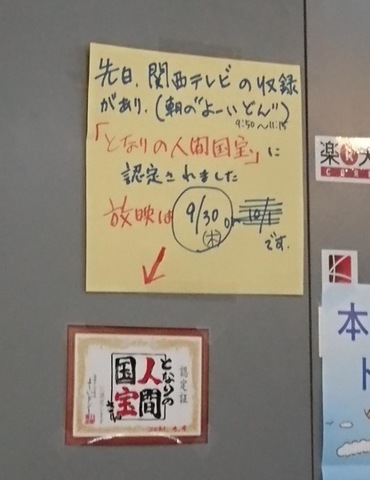 先日、関西テレビの収録
があり、(朝の"よーいどん")
9:50〜11:15
「となりの人間国宝」に
認定されました
放映は 9/30 or 10/1
(木)
です.
認定証
となりの
人間
国宝
さん
楽
本
ト